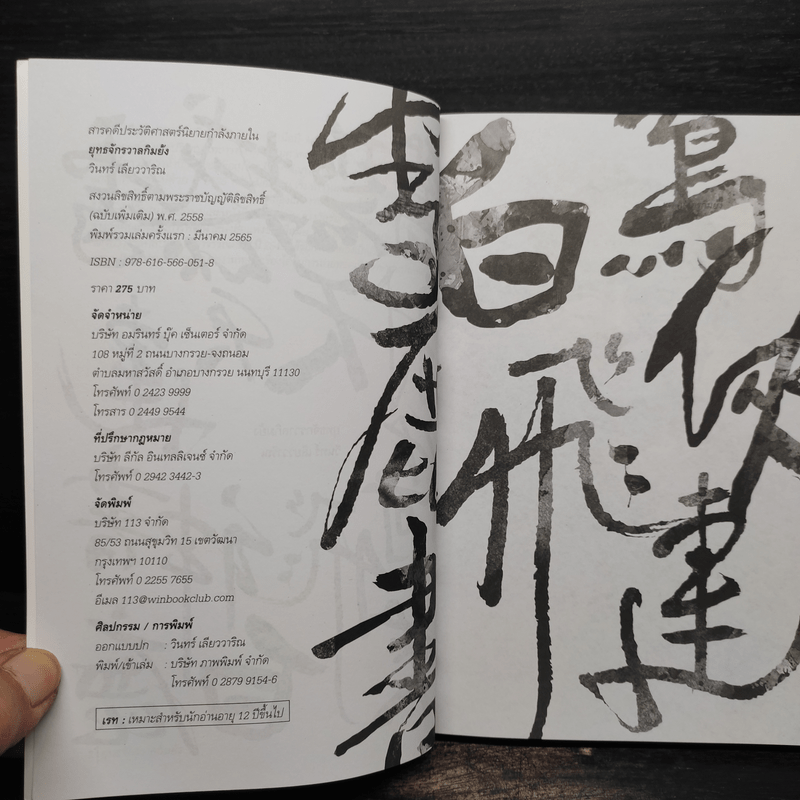 สารคดีประวัติศาสตร์นิยายกำลังภายใน
ยุทธจักรวาลกิมย้ง
วินทร์ เลียววาริณ
สงวนลิขสิทธิ์ตามพระราชบัญญัติลิขสิทธิ์
(ฉบับเพิ่มเติม) พ.ศ. 2558
พิมพ์รวมเล่มครั้งแรก : มีนาคม 2565
ISBN : 978-616-566-051-8
ราคา 275 บาท
จัดจำหน่าย
บริษัท อมรินทร์ บุ๊ค เซ็นเตอร์ จำกัด
108 หมู่ที่ 2 ถนนบางกรวย-จงถนอม
ตำบลมหาสวัสดิ์ อำเภอบางกรวย นนทบุรี 11130
โทรศัพท์ 0 2423 9999
โทรสาร 0 2449 9544
ที่ปรึกษากฎหมาย
บริษัท ลีกัล อินเทลลิเจนซ์ จำกัด
โทรศัพท์ 0 2942 3442-3
จัดพิมพ์
บริษัท 113 จำกัด
85/53 ถนนสุขุมวิท 15 เขตวัฒนา
กรุงเทพฯ 10110
โทรศัพท์ 0 2255 7655
อีเมล 113@winbookclub.com
ศิลปกรรม / การพิมพ์
ออกแบบปก : วินทร์ เลียววาริณ
พิมพ์/เข้าเล่ม : บริษัท ภาพพิมพ์ จำกัด
โทรศัพท์ 0 2879 9154-6
เรท : เหมาะสำหรับนักอ่านอายุ 12 ปีขึ้นไป
書
白
飛
俠
連